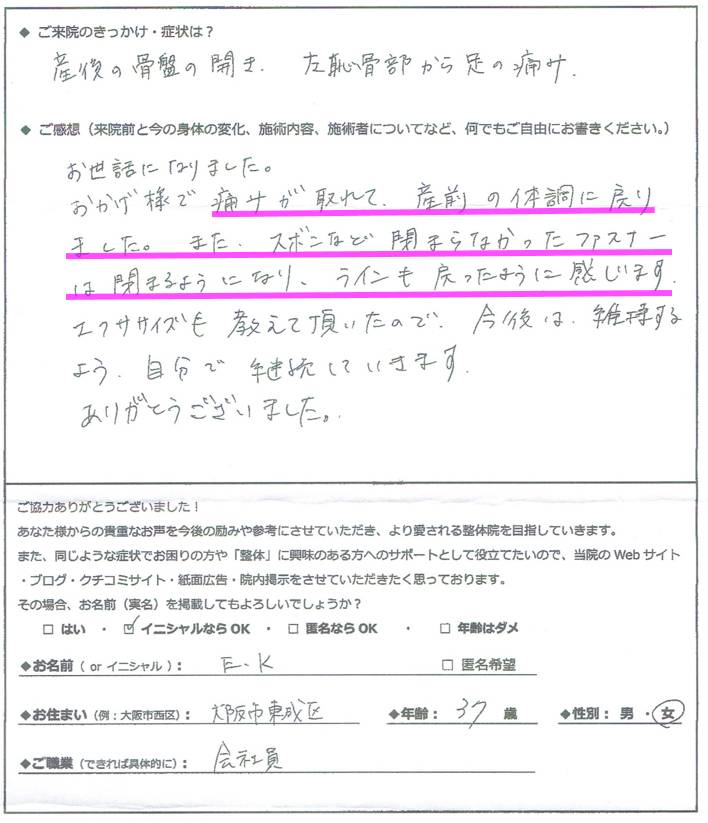 ◆ ご来院のきっかけ・症状は？
産後の骨盤の開き. 左恥骨部から足の痛み.
◆ ご感想（来院前と今の身体の変化、施術内容、施術者についてなど、何でもご自由にお書きください。）
お世話になりました。
おかげ様で痛みが取れて、産前の体調に戻り
ました。また、ズボンなど閉まらなかったファスナー
は閉まるようになり、ラインも戻ったように感じます.
エクササイズも教えて頂いたので、今後は、維持する
よう、自分で継続していきます.
ありがとうございました。
ご協力ありがとうございました！
あなた様からの貴重なお声を今後の励みや参考にさせていただき、より愛される整体院を目指していきます。
また、同じような症状でお困りの方や「整体」に興味のある方へのサポートとして役立てたいので、当院の Web サイト
・ブログ・クチコミサイト・紙面広告・院内掲示をさせていただきたく思っております。
その場合、お名前（実名）を掲載してもよろしいでしょうか？
□ はい ・ ☑ イニシャルなら OK ・ □ 匿名なら OK ・ □ 年齢はダメ
◆お名前（ or イニシャル ）： E.K □ 匿名希望
◆お住まい（例：大阪市西区）： 大阪市東成区 ◆年齢： 37 歳 ◆性別： 男 ・ 女
◆ご職業（できれば具体的に）： 会社員